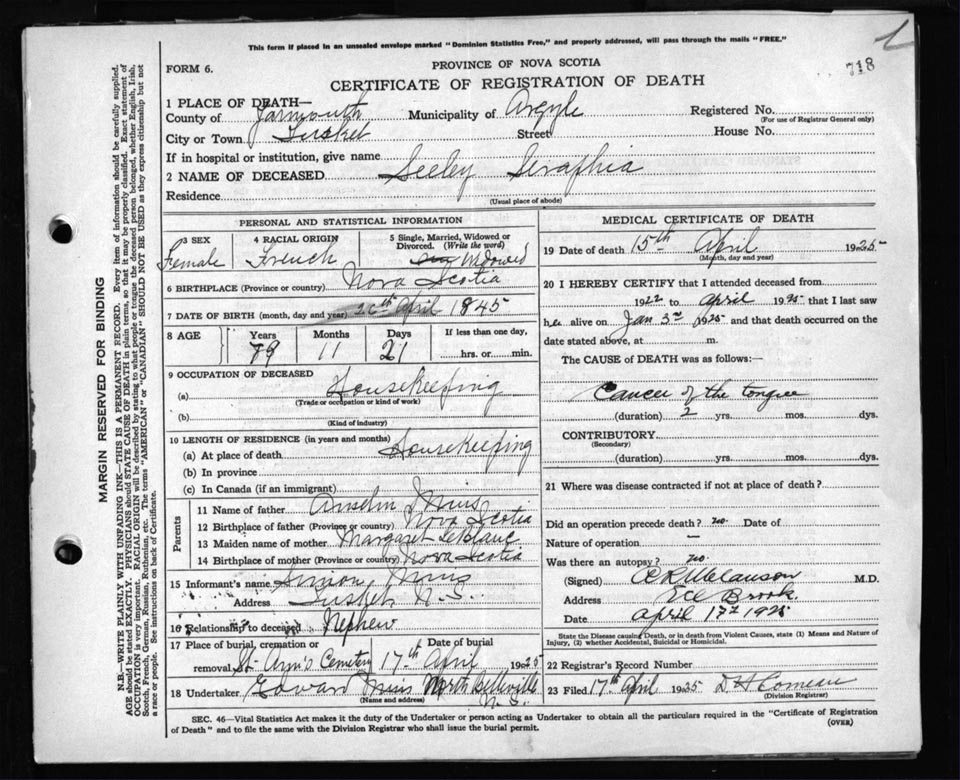 This form if placed in an unsealed envelope marked "Dominion Statistics Free," and properly addressed, will pass through the mails "FREE."
718
FORM 6.
PROVINCE OF NOVA SCOTIA
CERTIFICATE OF REGISTRATION OF DEATH
1 PLACE OF DEATH—
County of Yarmouth Municipality of Argyle Registered No.
(For use of Registrar General only)
City or Town Tusket Street House No.
If in hospital or institution, give name
2 NAME OF DECEASED Seeley Seraphia
Residence
(Usual place of abode)
PERSONAL AND STATISTICAL INFORMATION
3 SEX 4 RACIAL ORIGIN 5 Single, Married, Widowed or Divorced. (Write the word)
Female French Widowed
6 BIRTHPLACE (Province or country) Nova Scotia
7 DATE OF BIRTH (month, day and year) 26th April 1845
8 AGE Years Months Days If less than one day,
79 11 21 hrs. or min.
9 OCCUPATION OF DECEASED
(a) Housekeeping
(Trade or occupation or kind of work)
(b)
(Kind of industry)
10 LENGTH OF RESIDENCE (in years and months)
(a) At place of death Housekeeping
(b) In province
(c) In Canada (if an immigrant)
Parents
11 Name of father Anselm Muis
12 Birthplace of father (Province or country) Nova Scotia
13 Maiden name of mother Margaret LeBlanc
14 Birthplace of mother (Province or country) Nova Scotia
15 Informant's name Simon Muis
Address Tusket N.S.
16 Relationship to deceased Nephew
17 Place of burial, cremation or removal Date of burial
St. Ann's Cemetery 17th April 1925
18 Undertaker Edward Muis North Belleville N.S.
(Name and address)
MEDICAL CERTIFICATE OF DEATH
19 Date of death 15th April 1925
(Month, day and year)
20 I HEREBY CERTIFY that I attended deceased from
1922 to April 1925 that I last saw
her alive on Jan 3rd 1925 and that death occurred on the
date stated above, at m.
The CAUSE of DEATH was as follows:
Cancer of the tongue
(duration) 2 yrs. mos. dys.
CONTRIBUTORY
(Secondary)
(duration) yrs. mos. dys.
21 Where was disease contracted if not at place of death?
Did an operation precede death? no. Date of
Nature of operation —
Was there an autopsy? no.
(Signed) M.D.
Address Eel Brook
Date April 17 1925
State the Disease causing Death, or in death from Violent Causes, state (1) Means and Nature of Injury, (2) whether Accidental, Suicidal or Homicidal.
22 Registrar's Record Number
23 Filed 17th April 1925 D H Comeau
(Division Registrar)
SEC. 46—Vital Statistics Act makes it the duty of the Undertaker or person acting as Undertaker to obtain all the particulars required in the "Certificate of Registration
of Death" and to file the same with the Division Registrar who shall issue the burial permit.
(OVER)
MARGIN RESERVED FOR BINDING
N.B.—WRITE PLAINLY WITH UNFADING INK—THIS IS A PERMANENT RECORD. Every item of information should be carefully supplied.
AGE should be stated EXACTLY. PHYSICIANS should STATE CAUSE OF DEATH in plain terms, so that it may be properly classified. Exact statement of
OCCUPATION is very important. RACIAL ORIGIN will be described by stating to what people or tongue the deceased person belonged, whether English, Irish,
Scotch, French, German, Russian, Ruthenian, etc. The terms "AMERICAN" or "CANADIAN" SHOULD NOT BE USED as they express citizenship but not
a race or people. See instructions on back of Certificate.